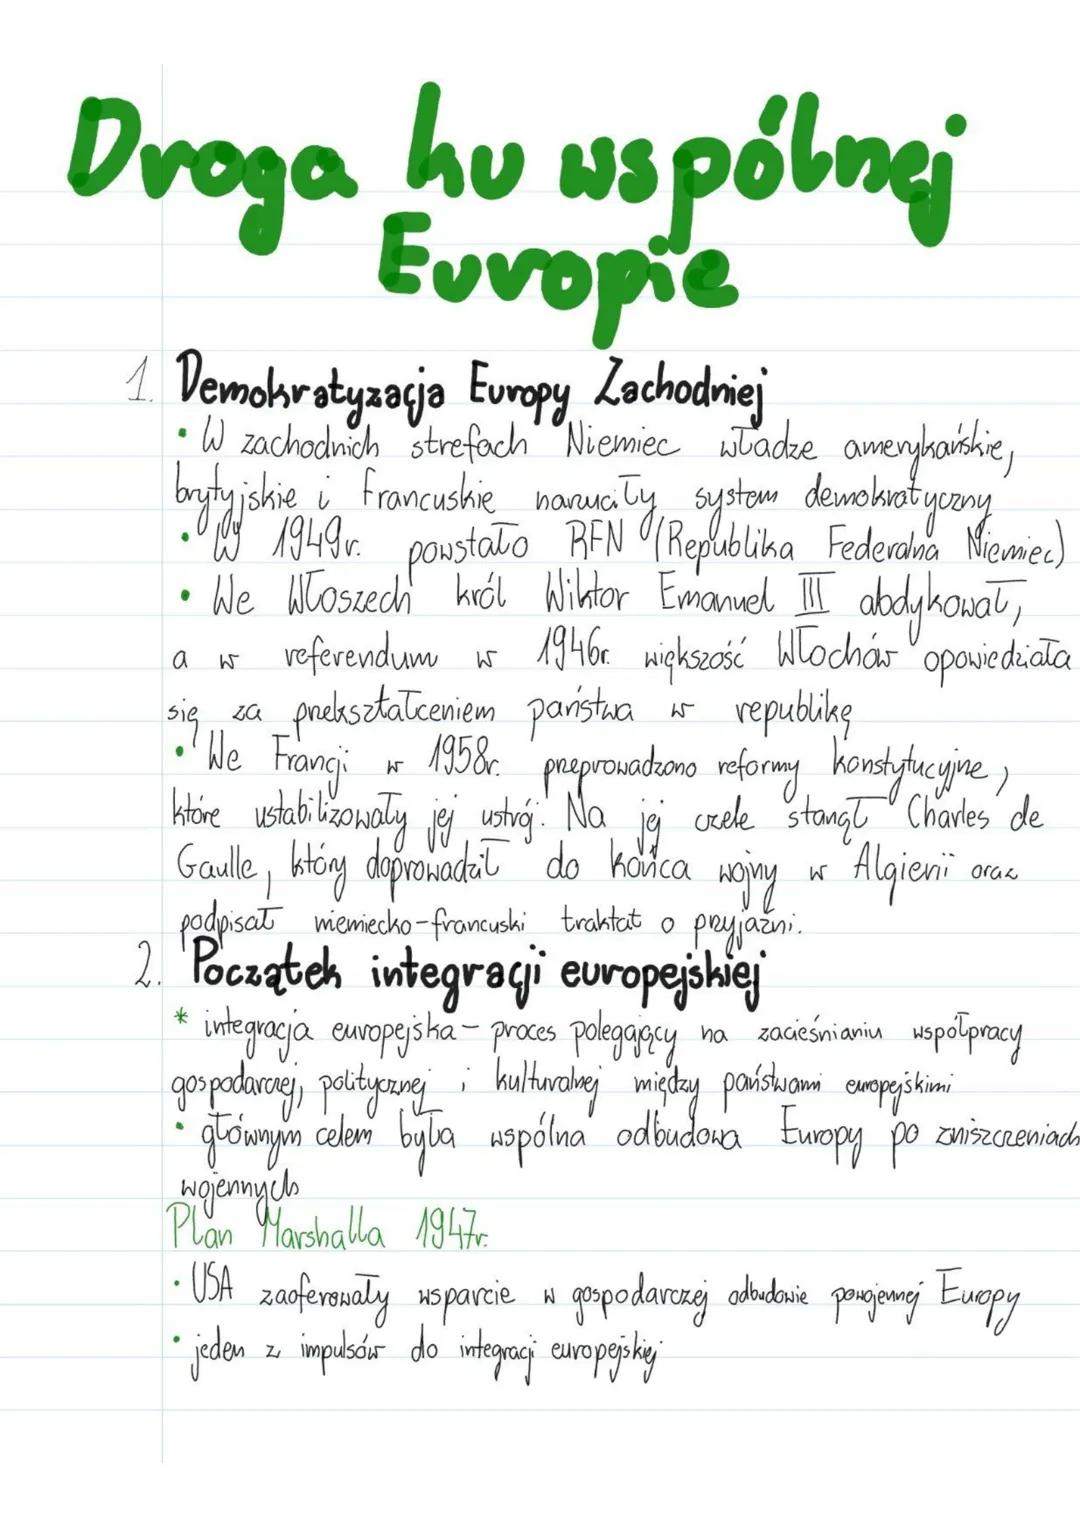 Droga ku wspólnej
Europie
1. Demokratyzacja Europy Zachodniej
• W zachodnich strefach Niemiec władze amerykańskie,
brytyjskie i francuskie narzuciły system demokratyczny
• W 1949r. powstało RFN (Republika Federalna Niemiec)
• We Włoszech król Wiktor Emanuel III abdykował,
a w referendum w 1946r. większość Włochów opowiedziała
się za przekształceniem państwa w republikę
• We Francji w 1958r. przeprowadzono reformy konstytucyjne,
które ustabilizowały jej ustrój. Na jej czele stanął Charles de
Gaulle, który doprowadził do końca wojny w Algierii oraz
podpisał niemiecko-francuski traktat o przyjaźni.
2. Początek integracji europejskiej
* integracja europejska - proces polegający na zacieśnianiu współpracy
gospodarczej, politycznej i kulturalnej między państwami europejskimi
• głównym celem była wspólna odbudowa Europy po zniszczeniach
wojennych
Plan Marshalla 1947r.
• USA zaoferowały wsparcie w gospodarczej odbudowie powojennej Europy
• jeden z impulsów do integracji europejskiej